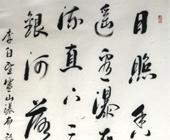 日照香
遥看瀑布
流直下
銀河落
李白望廬山瀑布